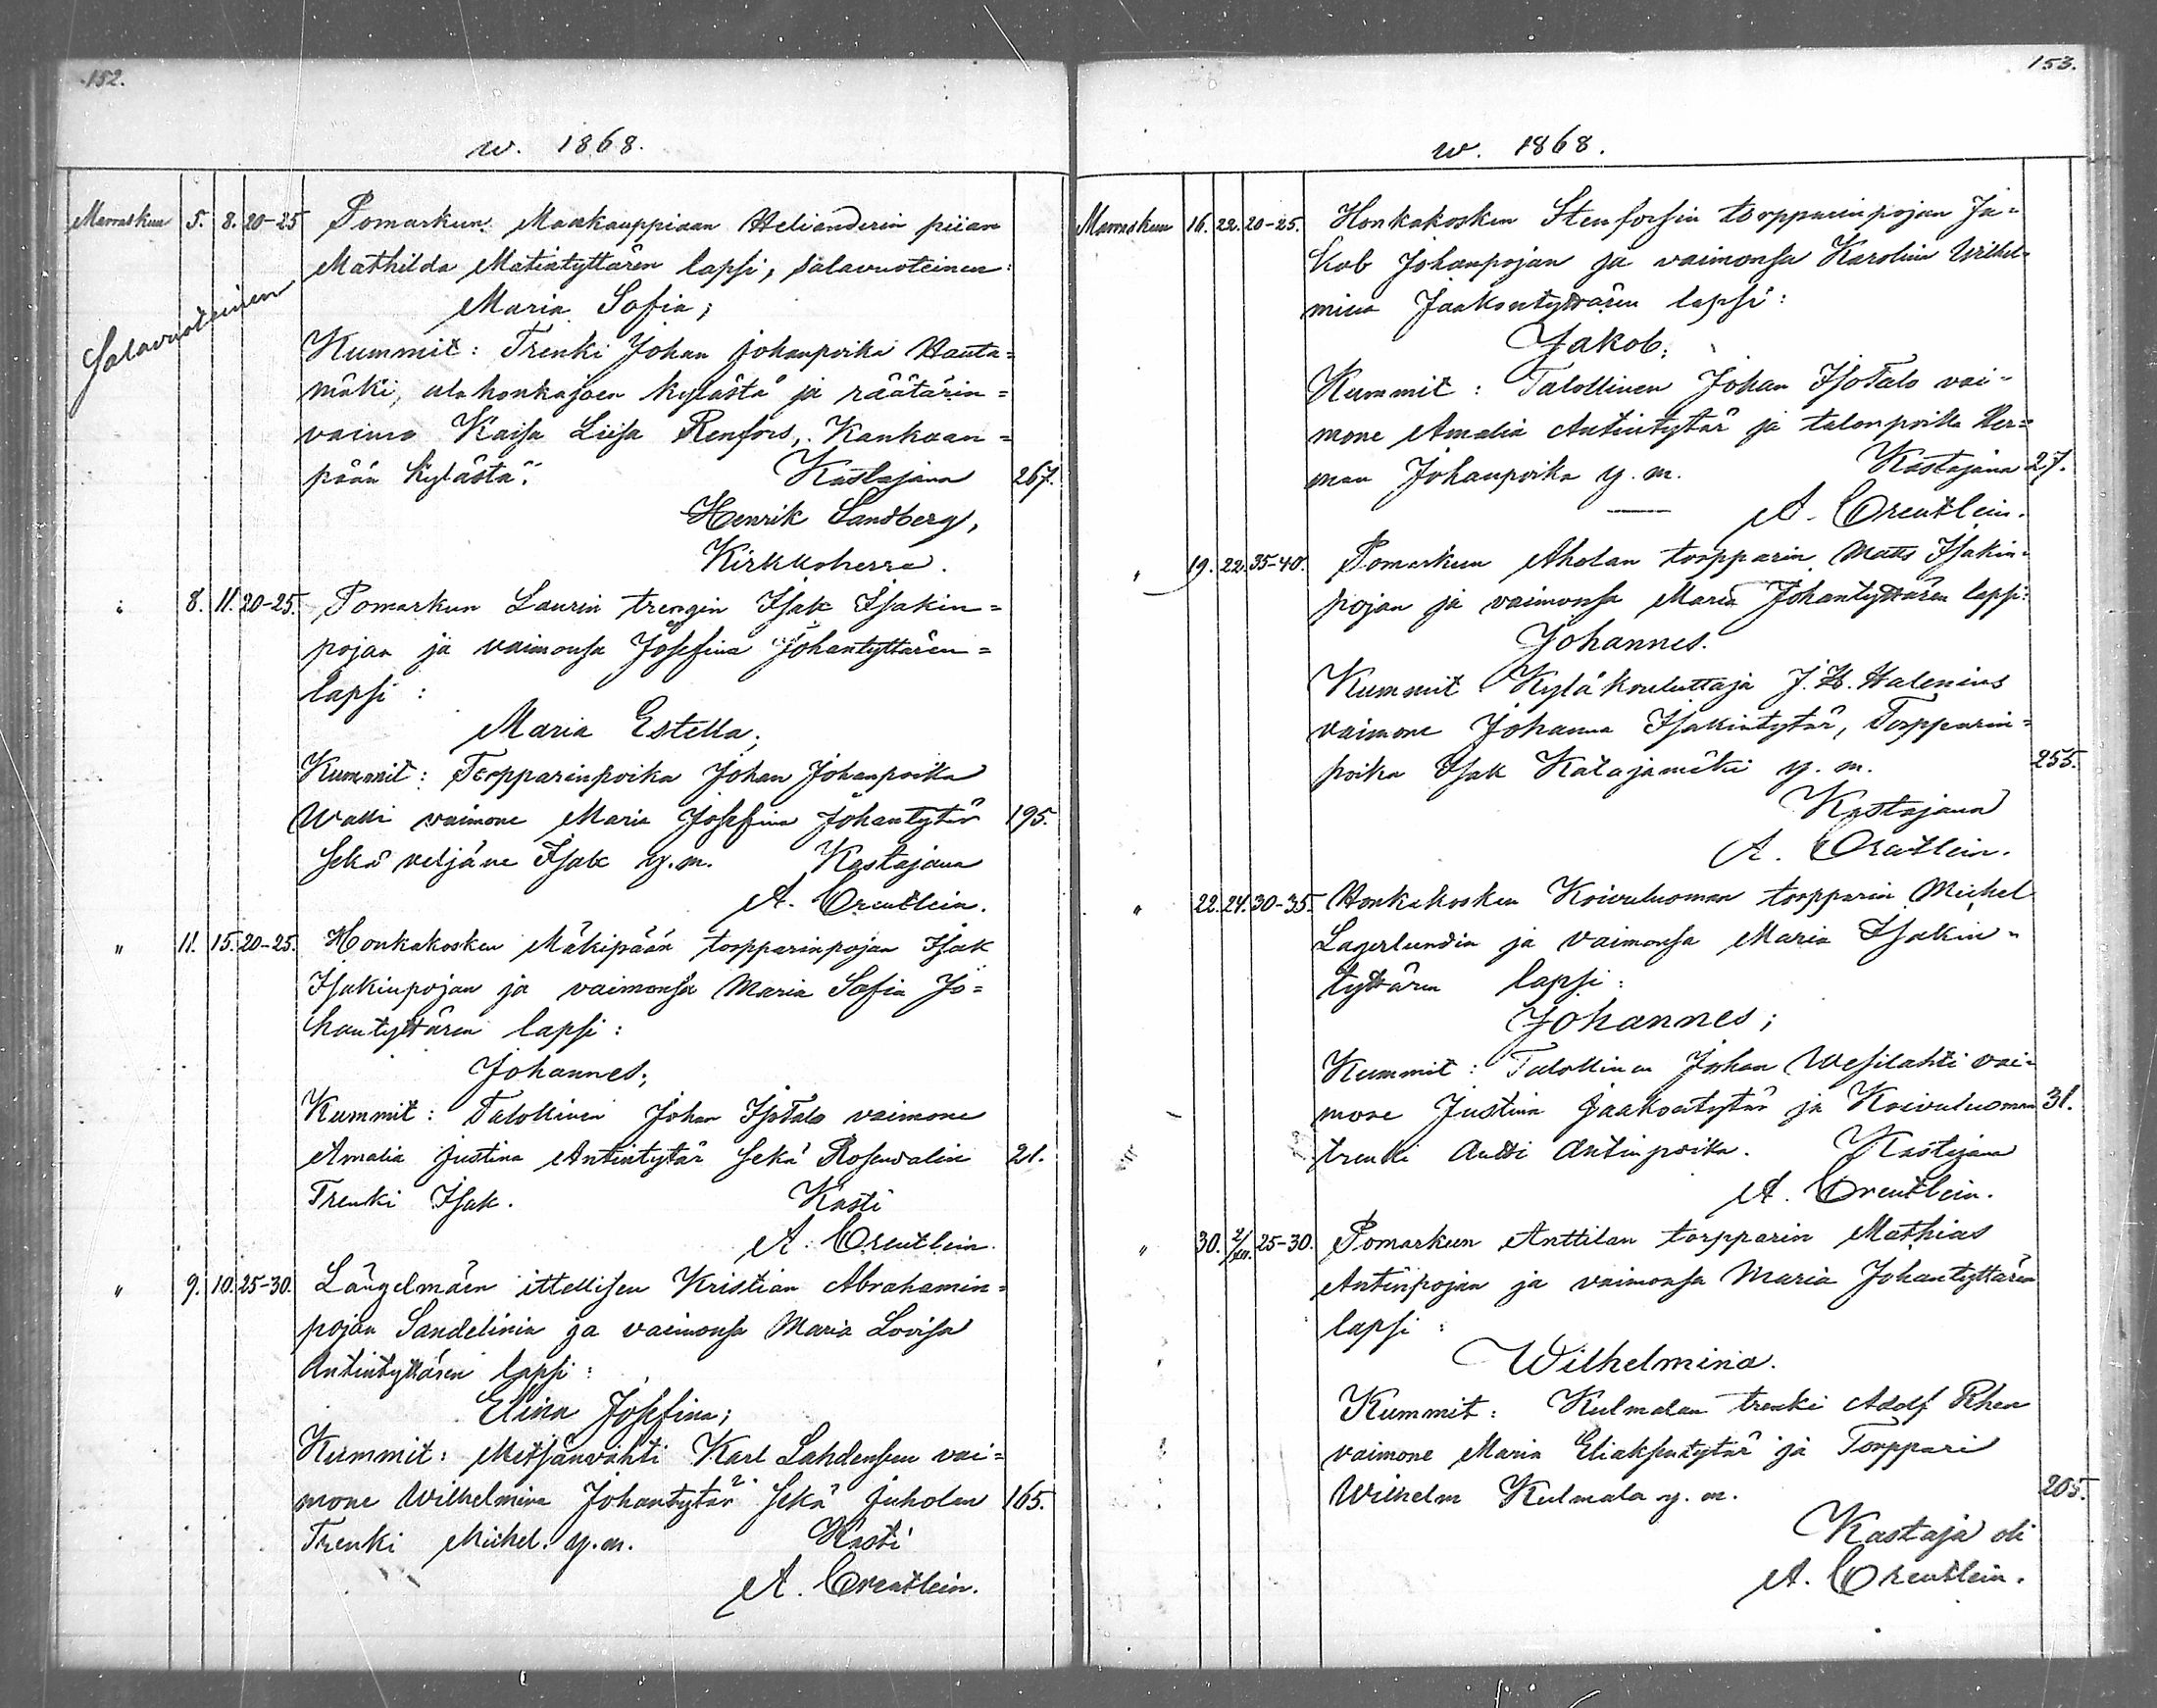 152.
w. 1868.
Marraskuu 5. 8. 20-25 Pomarkun Maakauppiaan Helianderin piian
Mathilda Matintyttären lapsi, salavuoteinen:
Salavuoteinen
Maria Sofia;
Kummit: Trenki Johan Johanpoika Hauta=
mäki, ala honkajoen kylästä ja räätärin=
vaimo Kaisa Liisa Renfors, Kankaan=
pään kylästä. Kastajana 267.
Henrik Sandberg,
Kirkkoherra.
" 8. 11. 20-25. Pomarkun Laurin trengin Isak Isakin=
pojan ja vaimonsa Josefina Johantyttären=
lapsi:
Maria Estella;
Kummit: Torpparinpoika Johan Johanpoika
Walli vaimone Maria Josefina Johantytär 195.
sekä veljäne Isak y.m. Kastajana
A. Oreutlein.
" 11. 15. 20-25. Honkakosken Mäkipään torpparinpojan Isak
Isakinpojan ja vaimonsa Maria Sofia Jo=
hantyttären lapsi:
Johannes;
Kummit: Talollinen Johan IsoTalo vaimone
Amalia Justina Antintytär sekä Rosendalin 21.
Trenki Isak. Kasti
A. Oreutlein.
" 9. 10. 25-30. Längelmäen ittellisen Kristian Abrahamin=
pojan Sandelinin ja vaimonsa Maria Lovisa
Antintyttären lapsi:
Elina Josefina;
Kummit: Metsänvahti Karl Lahdensuu vai=
mone Wilhelmina Johantytär sekä Juholan 165.
Trenki Michel. y.m. Kasti
A. Oreutlein.
153.
w. 1868.
Marraskuu 16. 22. 20-25. Honkakosken Stenforsin torpparinpojan Ja=
kob Johanpojan ja vaimonsa Karolina Wilhel=
mina Jaakontyttären lapsi:
Jakob;
Kummit: Talollinen Johan IsoTalo vai=
mone Amalia Antintytär ja talonpoika Her=
man Johanpoika y.m. Kastajana 27.
A. Oreutlein.
" 19. 22. 35-40. Pomarkun Aholan torpparin Matts Isakin=
pojan ja vaimonsa Maria Johantyttären lapsi:
Johannes.
Kummit Kyläkouluttaja J. H. Halenius
vaimone Johanna Isakintytär, Torpparin=
poika Isak Katajamäki y.m. 255.
Kastajana
A. Oreutlein.
" 22. 24. 30-35. Honkakosken Koivuluoman torpparin Michel
Lagerlundin ja vaimonsa Maria Isakin=
tyttären lapsi:
Johannes;
Kummit: Talollinen Johan Wesilahti vai=
mone Justina Jaakontytär ja Koivuluoman 31.
trenki Antti Antinpoika. Kastajana
A. Oreutlein.
" 30. 2/XII. 25-30. Pomarkun Anttilan torpparin Mathias
Antinpojan ja vaimonsa Maria Johantyttären
lapsi:
Wilhelmina.
Kummit: Kulmalan trenki Adolf Rhen
vaimone Maria Eliaksentytär ja Torppari
Wilhelm Kulmala y.m. 205.
Kastaja oli
A. Oreutlein.